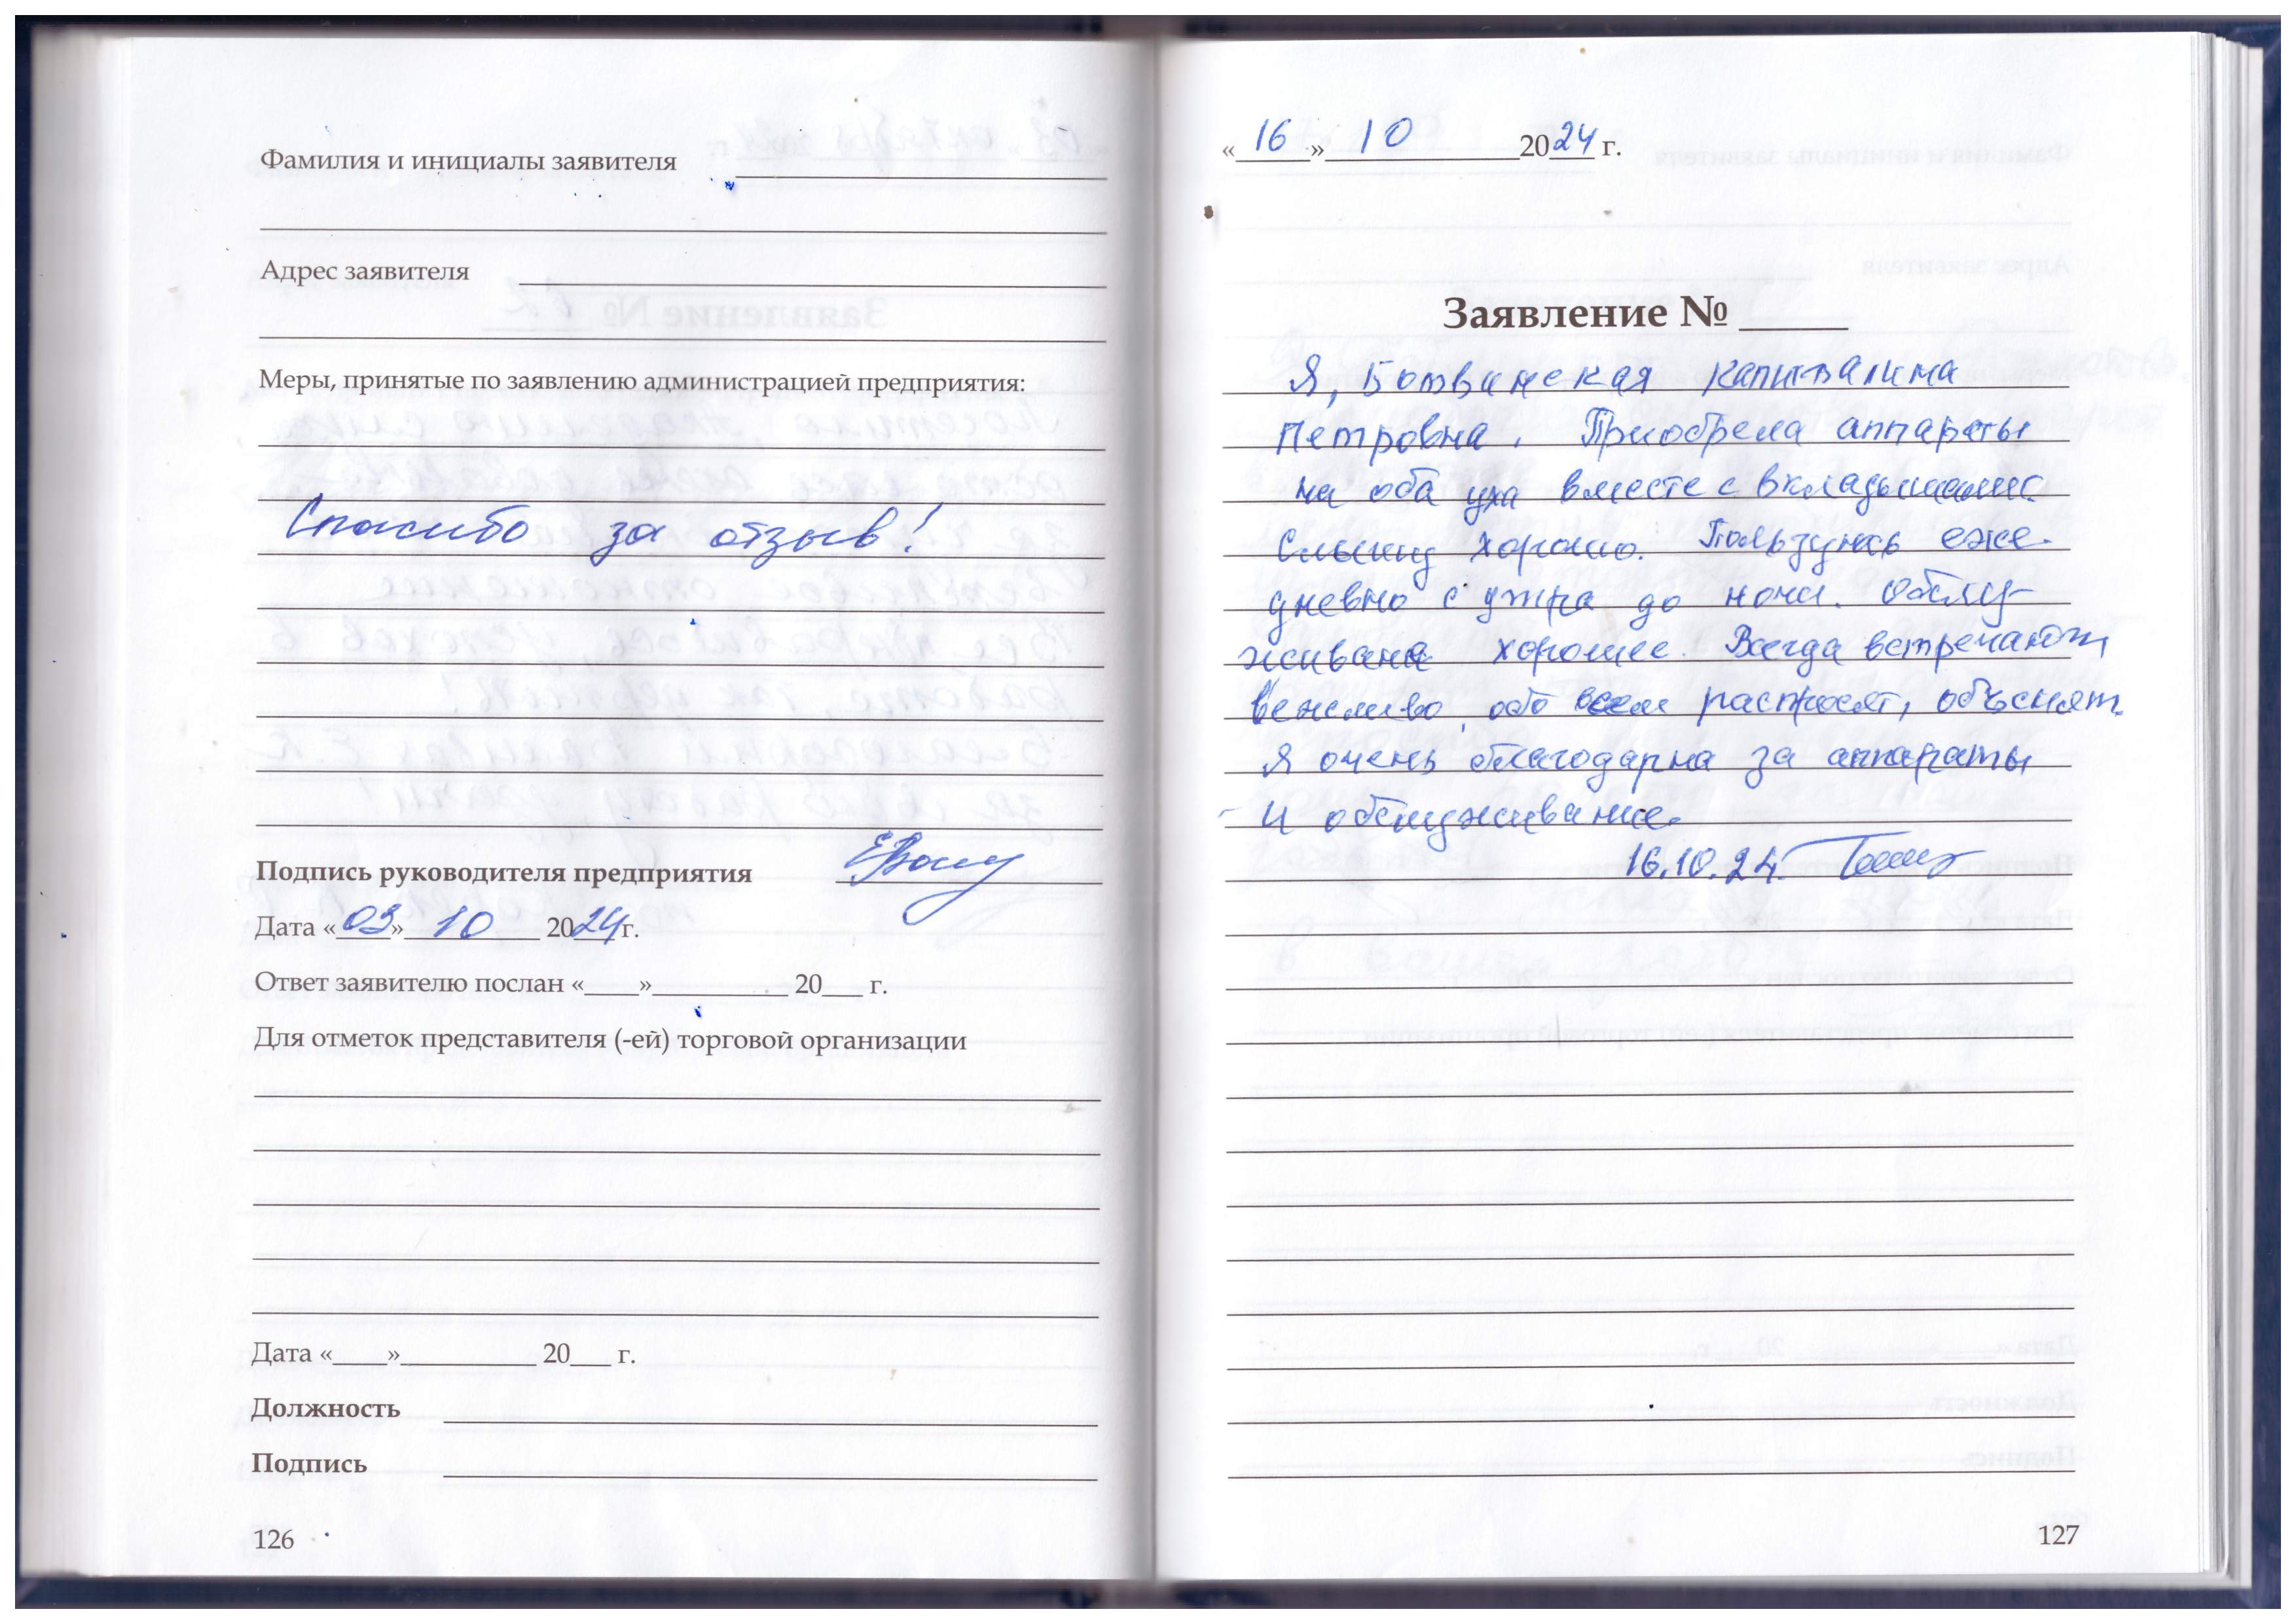 Фамилия и инициалы заявителя
Адрес заявителя
Меры, принятые по заявлению администрацией предприятия:
Спасибо за отзыв!
Подпись руководителя предприятия
Дата «03» 10 2024 г.
Ответ заявителю послан «____»__________ 20___ г.
Для отметок представителя (-ей) торговой организации
Дата «____»__________ 20___ г.
Должность
Подпись
126
«16» 10 2024 г.
Заявление № _____
Я, Ботвинская Капиталина
Петровна. Приобрела аппараты
на оба уха вместе с вкладышами.
Слышу хорошо. Пользуюсь еже-
дневно с утра до ночи. Обслу-
живане хорошее. Всегда встречают
вежливо, обо всем распросят, объяснят.
Я очень благодарна за аппараты
и обслуживание.
16.10.24.
127